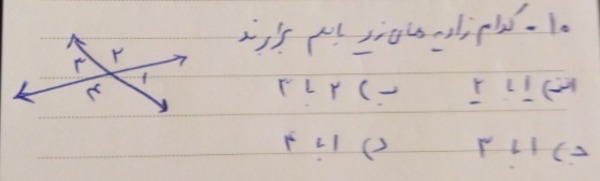 ۱۰- کدام زاویه های زیر باهم برابرند
الف) ۱ با ۲ ب) ۲ با ۳
ج) ۱ با ۳ د) ۱ با ۴
۲
۳ ۱
۴